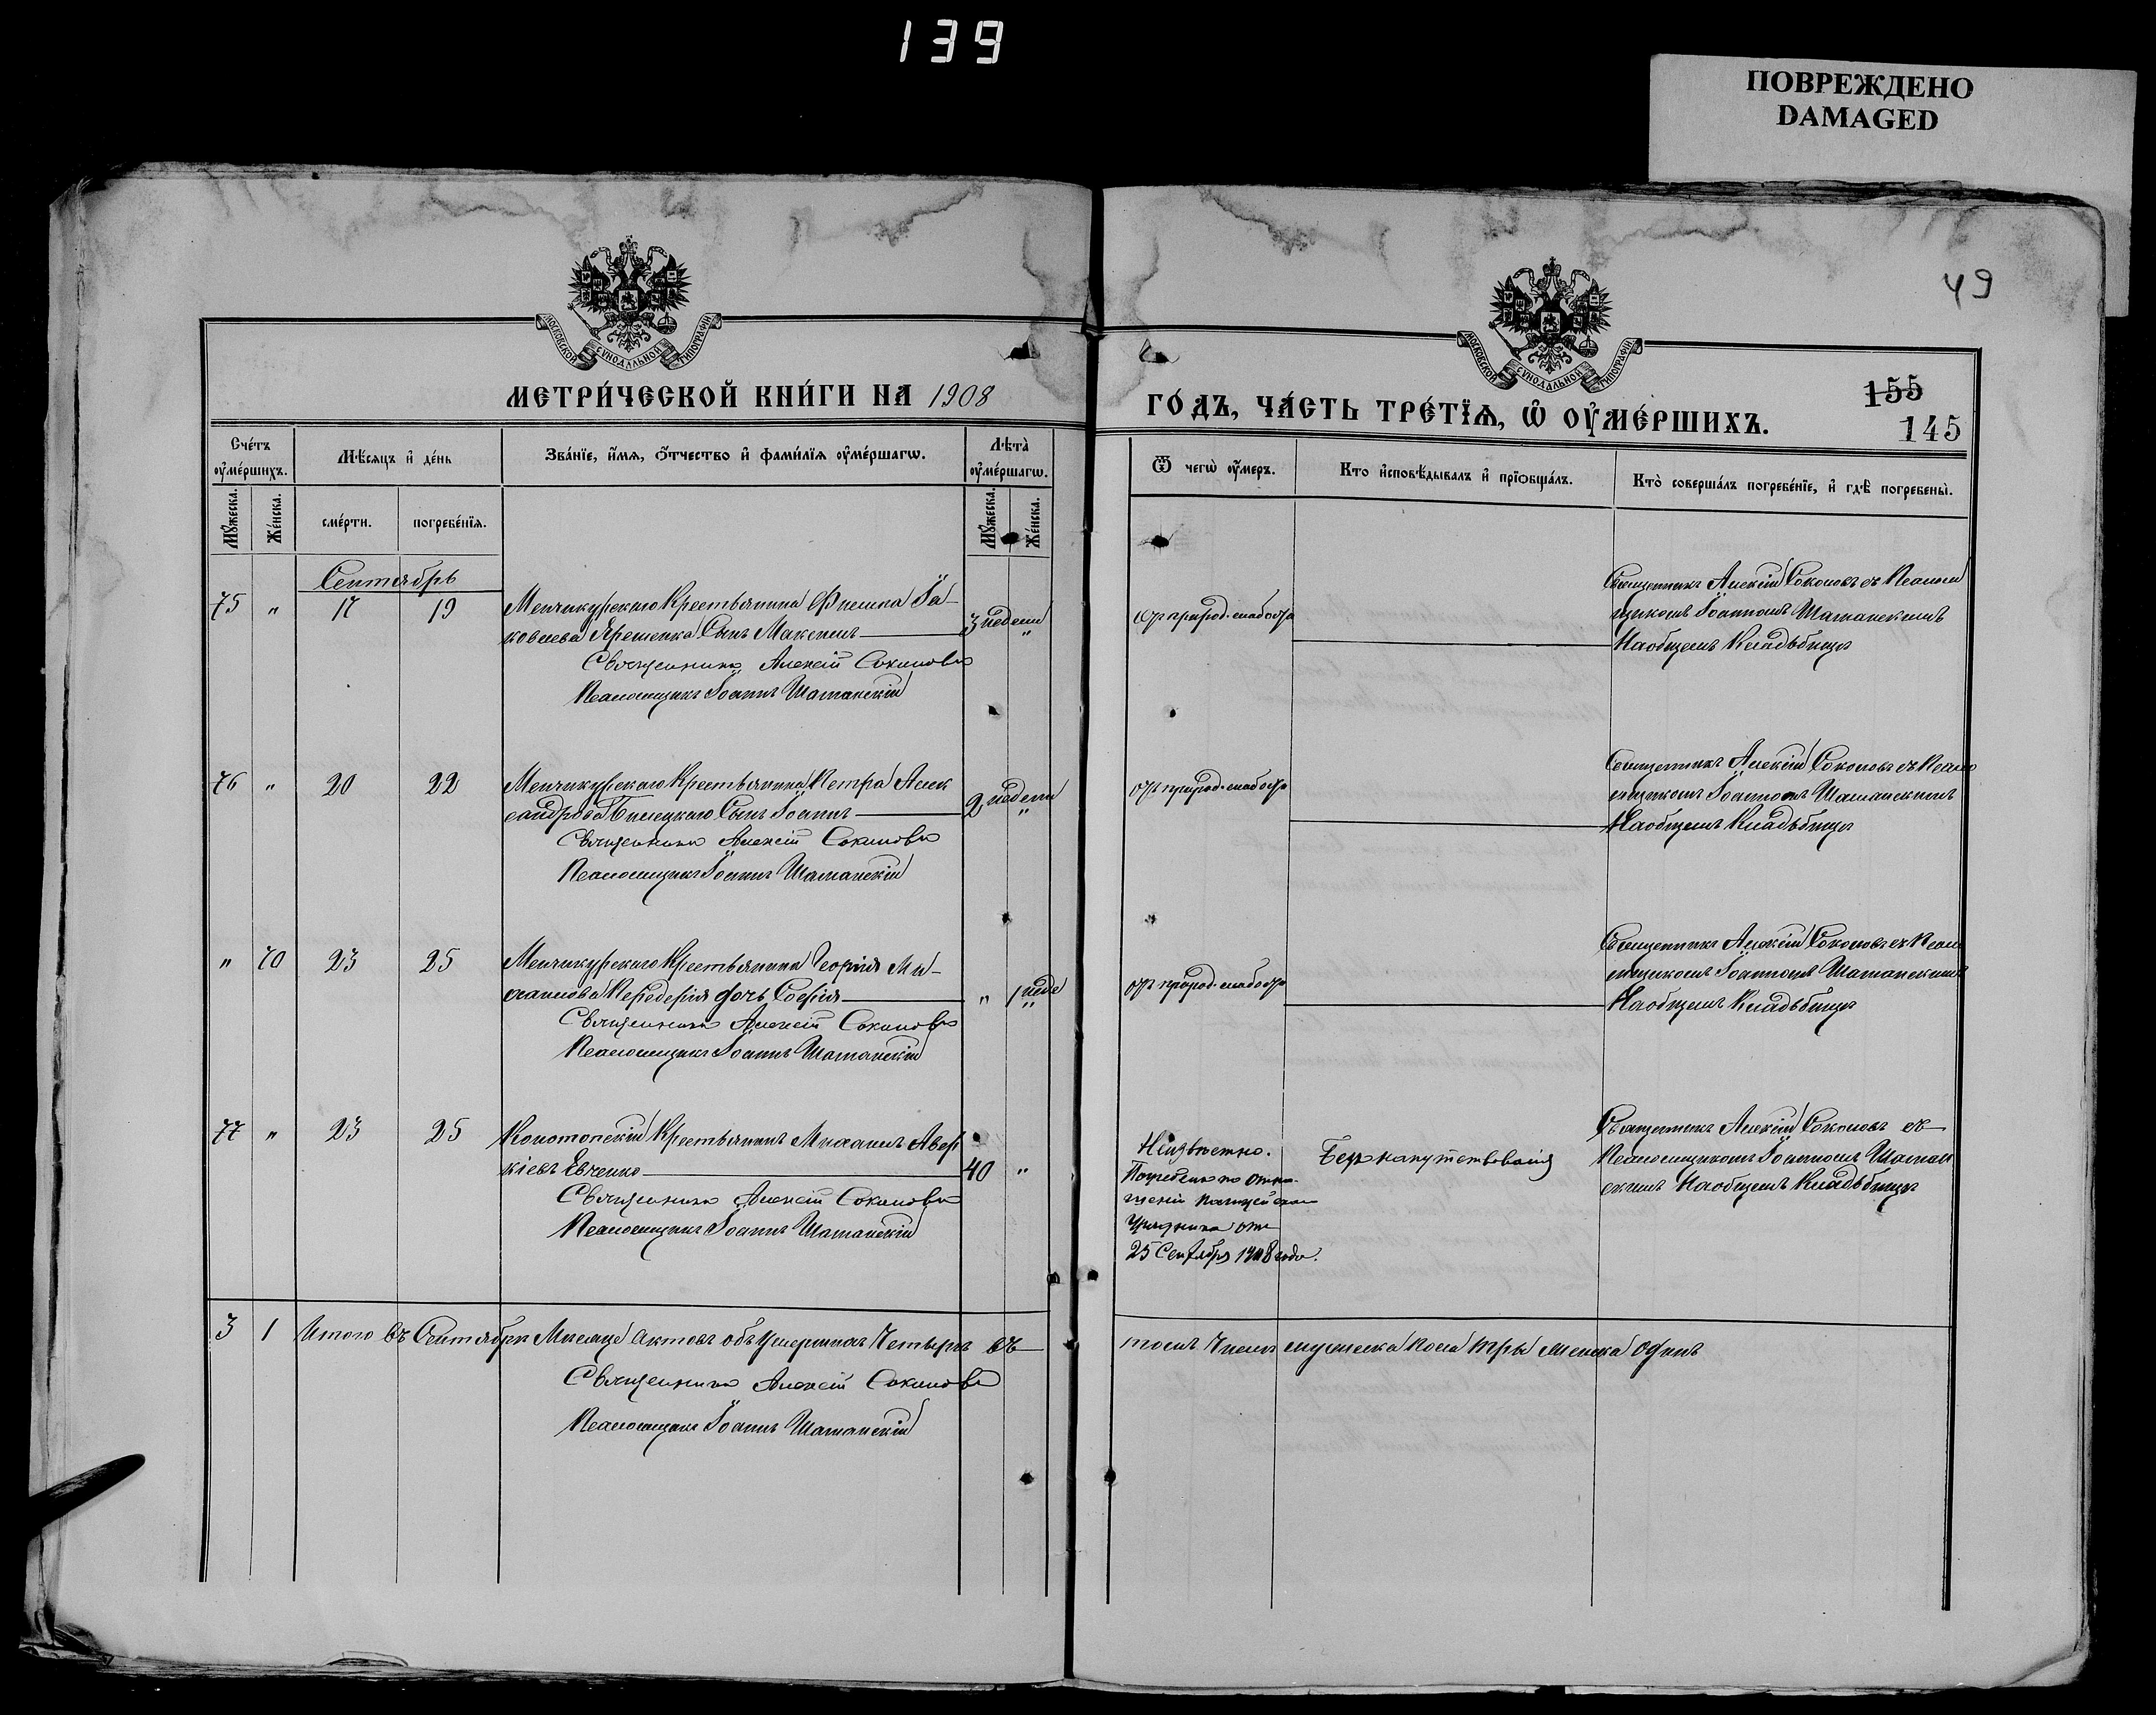 139
ПОВРЕЖДЕНО
DAMAGED
49
МОСКОВСКОЙ СѴНОДАЛЬНОЙ ТИПОГРАФІИ
МОСКОВСКОЙ СѴНОДАЛЬНОЙ ТИПОГРАФІИ
МЕТРИ́ЧЕСКОЙ КНИ́ГИ НА 1908
ГО́ДЪ, ЧА́СТЬ ТРЕ́ТЇѦ, Ѡ҆ ОУ҆МЕ́РШИХЪ.
155
145
Сче́тъ оу҆ме́ршихъ.
Мꙋ́жеска.
Же́нска.
Мѣ́сяцъ и҆ де́нь
сме́рти.
погребе́нїѧ.
Зва́нїе, и҆́мѧ, ѻ҆́тчество и҆ фами́лїѧ оу҆ме́ршагѡ.
Лѣ́та̀ оу҆ме́ршагѡ.
Мꙋ́жеска.
Же́нска.
Ѿ чегѡ̀ оу҆́меръ.
Кто и҆сповѣ́дывалъ и҆ прїѻбща́лъ.
Кто̀ соверша́лъ погребе́нїе, и҆ гдѣ̀ погребены̀.
Сентябрь
75 " 17 19
Менчикурскаго Крестьянина Филиппа Іа-
ковлева Ярешенка Сынъ Максимъ
3 недели "
Священникъ Алексій Соколовъ
Псаломщикъ Іоаннъ Шатанскій
От природ. слабости
Священникъ Алексій Соколовъ съ Псалом
щикомъ Іоанномъ Шатанскимъ
На общемъ Кладьбищѣ
76 " 20 22
Менчикурскаго Крестьянина Петра Алек
сандрова Билецкаго Сынъ Іоаннъ
2 недели "
Священникъ Алексій Соколовъ
Псаломщикъ Іоаннъ Шатанскій
От природ. слабости
Священникъ Алексій Соколовъ съ Псало
мщикомъ Іоанномъ Шатанскимъ
На общемъ Кладьбищѣ
" 70 23 25
Менчикурскаго Крестьянина Георгія Ми-
хаилова Передерія дочь Софія
" 1 неде
Священникъ Алексій Соколовъ
Псаломщикъ Іоаннъ Шатанскій
От природ. слабости
Священникъ Алексій Соколовъ съ Псало
мщикомъ Іоанномъ Шатанскимъ
На общемъ Кладьбищѣ
77 " 23 25
Конотопскій Крестьянинъ Михаилъ Авер
кіевъ Евченко
40 "
Священникъ Алексій Соколовъ
Псаломщикъ Іоаннъ Шатанскій
Неизвѣстно.
Погребенъ по отно-
шенію Полицейскаго
Урядника отъ
25 Сентября 1908 года.
Безъ напутствованія
Священникъ Алексій Соколовъ съ
Псаломщикомъ Іоанномъ Шатан
скимъ На общемъ Кладьбищѣ
3 1 Итого въ Сентябрѣ Мѣсяце актовъ объ Умершихъ Четыре въ томъ Числѣ мужеска пола три женска одинъ
Священникъ Алексій Соколовъ
Псаломщикъ Іоаннъ Шатанскій